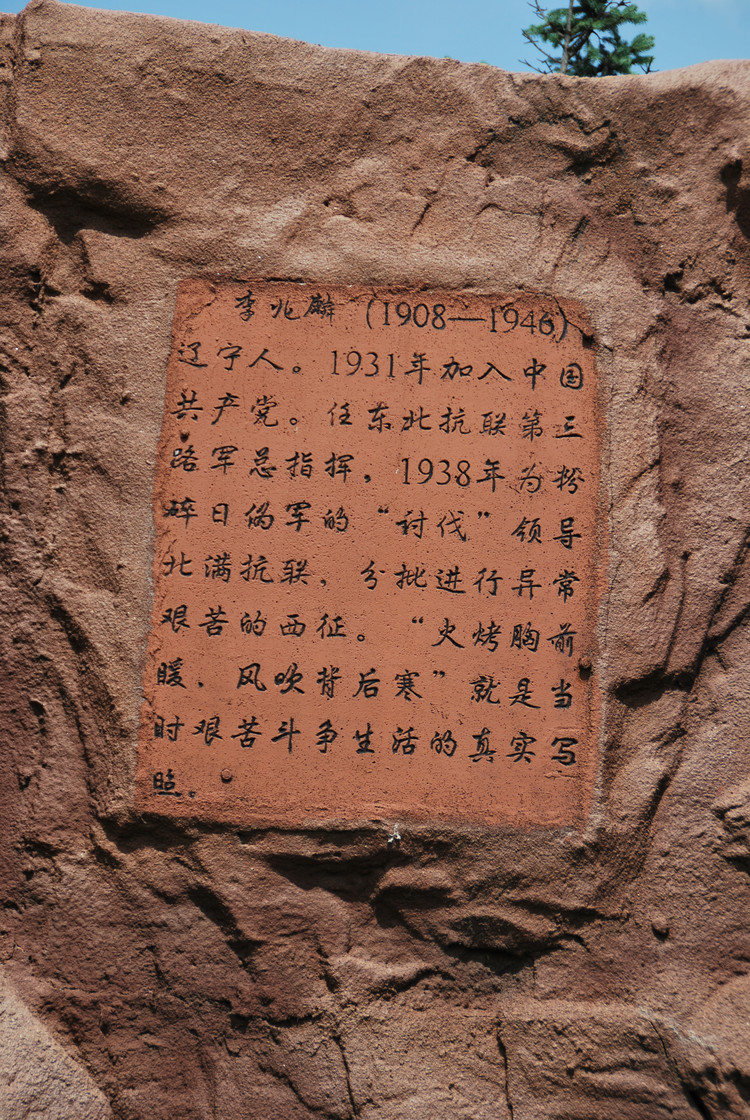 李兆麟（1908—1946）
辽宁人。1931年加入中国
共产党。任东北抗联第三
路军总指挥，1938年为粉
碎日伪军的“讨伐”领导
北满抗联，分批进行异常
艰苦的西征。“火烤胸前
暖．风吹背后寒”就是当
时艰苦斗争生活的真实写
照。